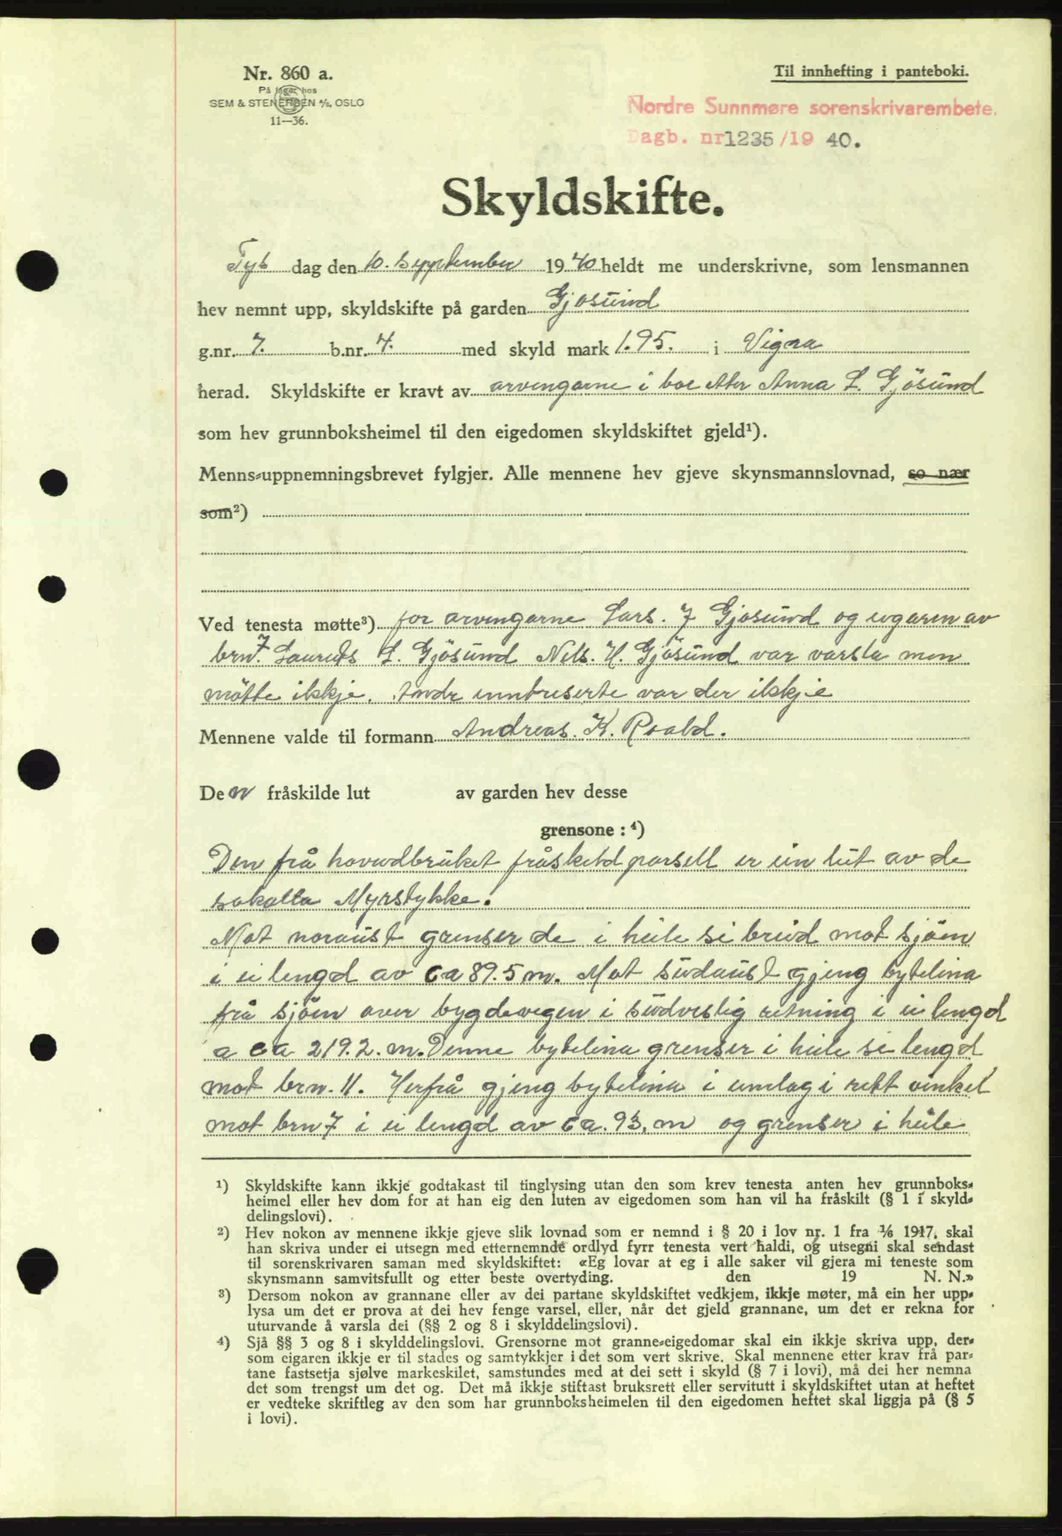 Nr. 860 a.
På lager hos
SEM & STENERSEN A/S, OSLO
11—36.
Til innhefting i panteboki.
Nordre Sunnmøre sorenskrivarembete.
Dagb. nr 1235/19 40.
Skyldskifte.
Tys dag den 10. September 1940 heldt me underskrivne, som lensmannen
hev nemnt upp, skyldskifte på garden Gjøsund
g.nr. 7. b.nr. 4. med skyld mark 1.95. i Vigra
herad. Skyldskifte er kravt av arvingarne i boe etter Anna L. Gjøsund
som hev grunnboksheimel til den eigedomen skyldskiftet gjeld¹).
Menns-uppnemningsbrevet fylgjer. Alle mennene hev gjeve skynsmannslovnad, so nær
som²)
Ved tenesta møtte³) for arvingarne Lars. J Gjøsund og eigaren av
brn. 7. Laurits L. Gjøsund Nils. H. Gjøsund var varsla men
møtte ikkje. Andr inntreserte var der ikkje
Mennene valde til formann Andreas. K. Roald.
Den fråskilde lut av garden hev desse
grensone : ⁴)
Den frå hovudbruket fråskild parsell er ein lut av de
sokalla Myrstykke.
Mot noraust grenser de i heile si breid mot sjøen
i ei lengd av ca 89.5 m. Mot sudaust gjeng bytelina
frå sjøen over bygdevegen i sudvestlig retning i ei lengd
a ca 219.2 m. Denne bytelina grenser i heile si lengd
mot brn. 11. Herfrå gjeng bytelina i umlag i rett vinkel
mot brn 7 i ei lengd av ca. 93. m og grenser i heile
¹) Skyldskifte kann ikkje godtakast til tinglysing utan den som krev tenesta anten hev grunnboks-
heimel eller hev dom for at han eig den luten av eigedomen som han vil ha fråskilt (§ 1 i skyld-
delingslovi).
²) Hev nokon av mennene ikkje gjeve slik lovnad som er nemnd i § 20 i lov nr. 1 fra 1/6 1917, skal
han skriva under ei utsegn med etternemnde ordlyd fyrr tenesta vert haldi, og utsegni skal sendast
til sorenskrivaren saman med skyldskiftet: «Eg lovar at eg i alle saker vil gjera mi teneste som
skynsmann samvitsfullt og etter beste overtyding. den 19 N. N.»
³) Dersom nokon av grannane eller av dei partane skyldskiftet vedkjem, ikkje møter, må ein her upp-
lysa um det er prova at dei hev fenge varsel, eller, når det gjeld grannane, um det er rekna for
uturvande å varsla dei (§§ 2 og 8 i skylddelingslovi).
⁴) Sjå §§ 3 og 8 i skylddelingslovi. Grensorne mot granne-eigedomar skal ein ikkje skriva upp, der-
som eigaren ikkje er til stades og samtykkjer i det som vert skrive. Skal mennene etter krav frå par-
tane fastsetja sjølve markeskilet, samstundes med at dei sett i skyld (§ 7 i lovi), må dei her nemna
det som trengst um det og. Det må ikkje stiftast bruksrett eller servitutt i skyldskiftet utan at heftet
er vedteke skriftleg av den som har grunnboksheimelen til den eigedomen heftet skal liggja på (§ 5
i lovi).